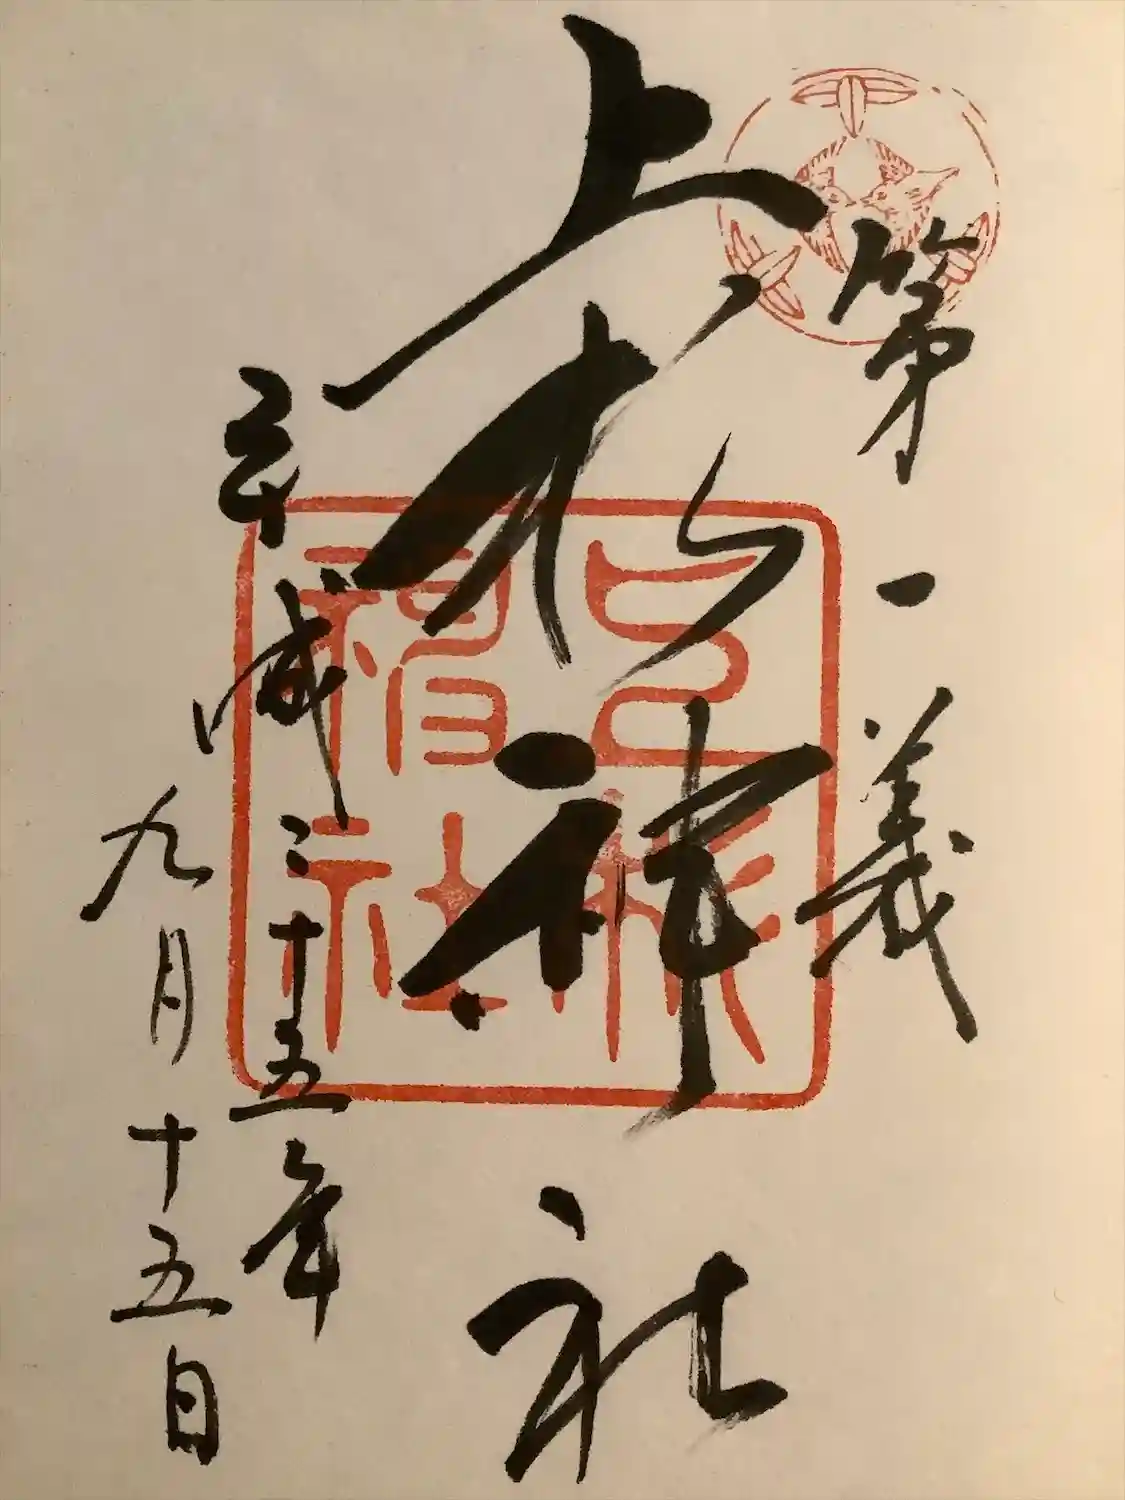 第一義
上杉神社
平成二十五年
九月十五日
上杉
神社